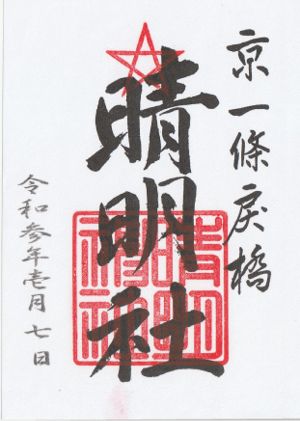 京一條戻橋
晴明社
晴明神社
令和参年壱月七日